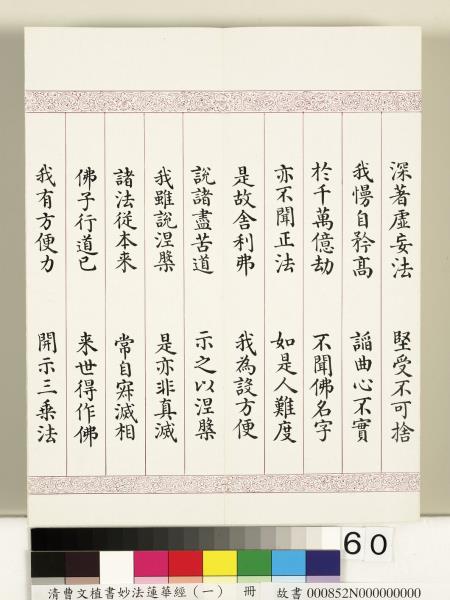 深著虛妄法　堅受不可捨
我慢自矜高　諂曲心不實
於千萬億劫　不聞佛名字
亦不聞正法　如是人難度
是故舍利弗　我為設方便
說諸盡苦道　示之以涅槃
我雖說涅槃　是亦非真滅
諸法從本來　常自寂滅相
佛子行道已　來世得作佛
我有方便力　開示三乘法
60
清曹文植書妙法蓮華經（一）　冊　故書 000852N000000000